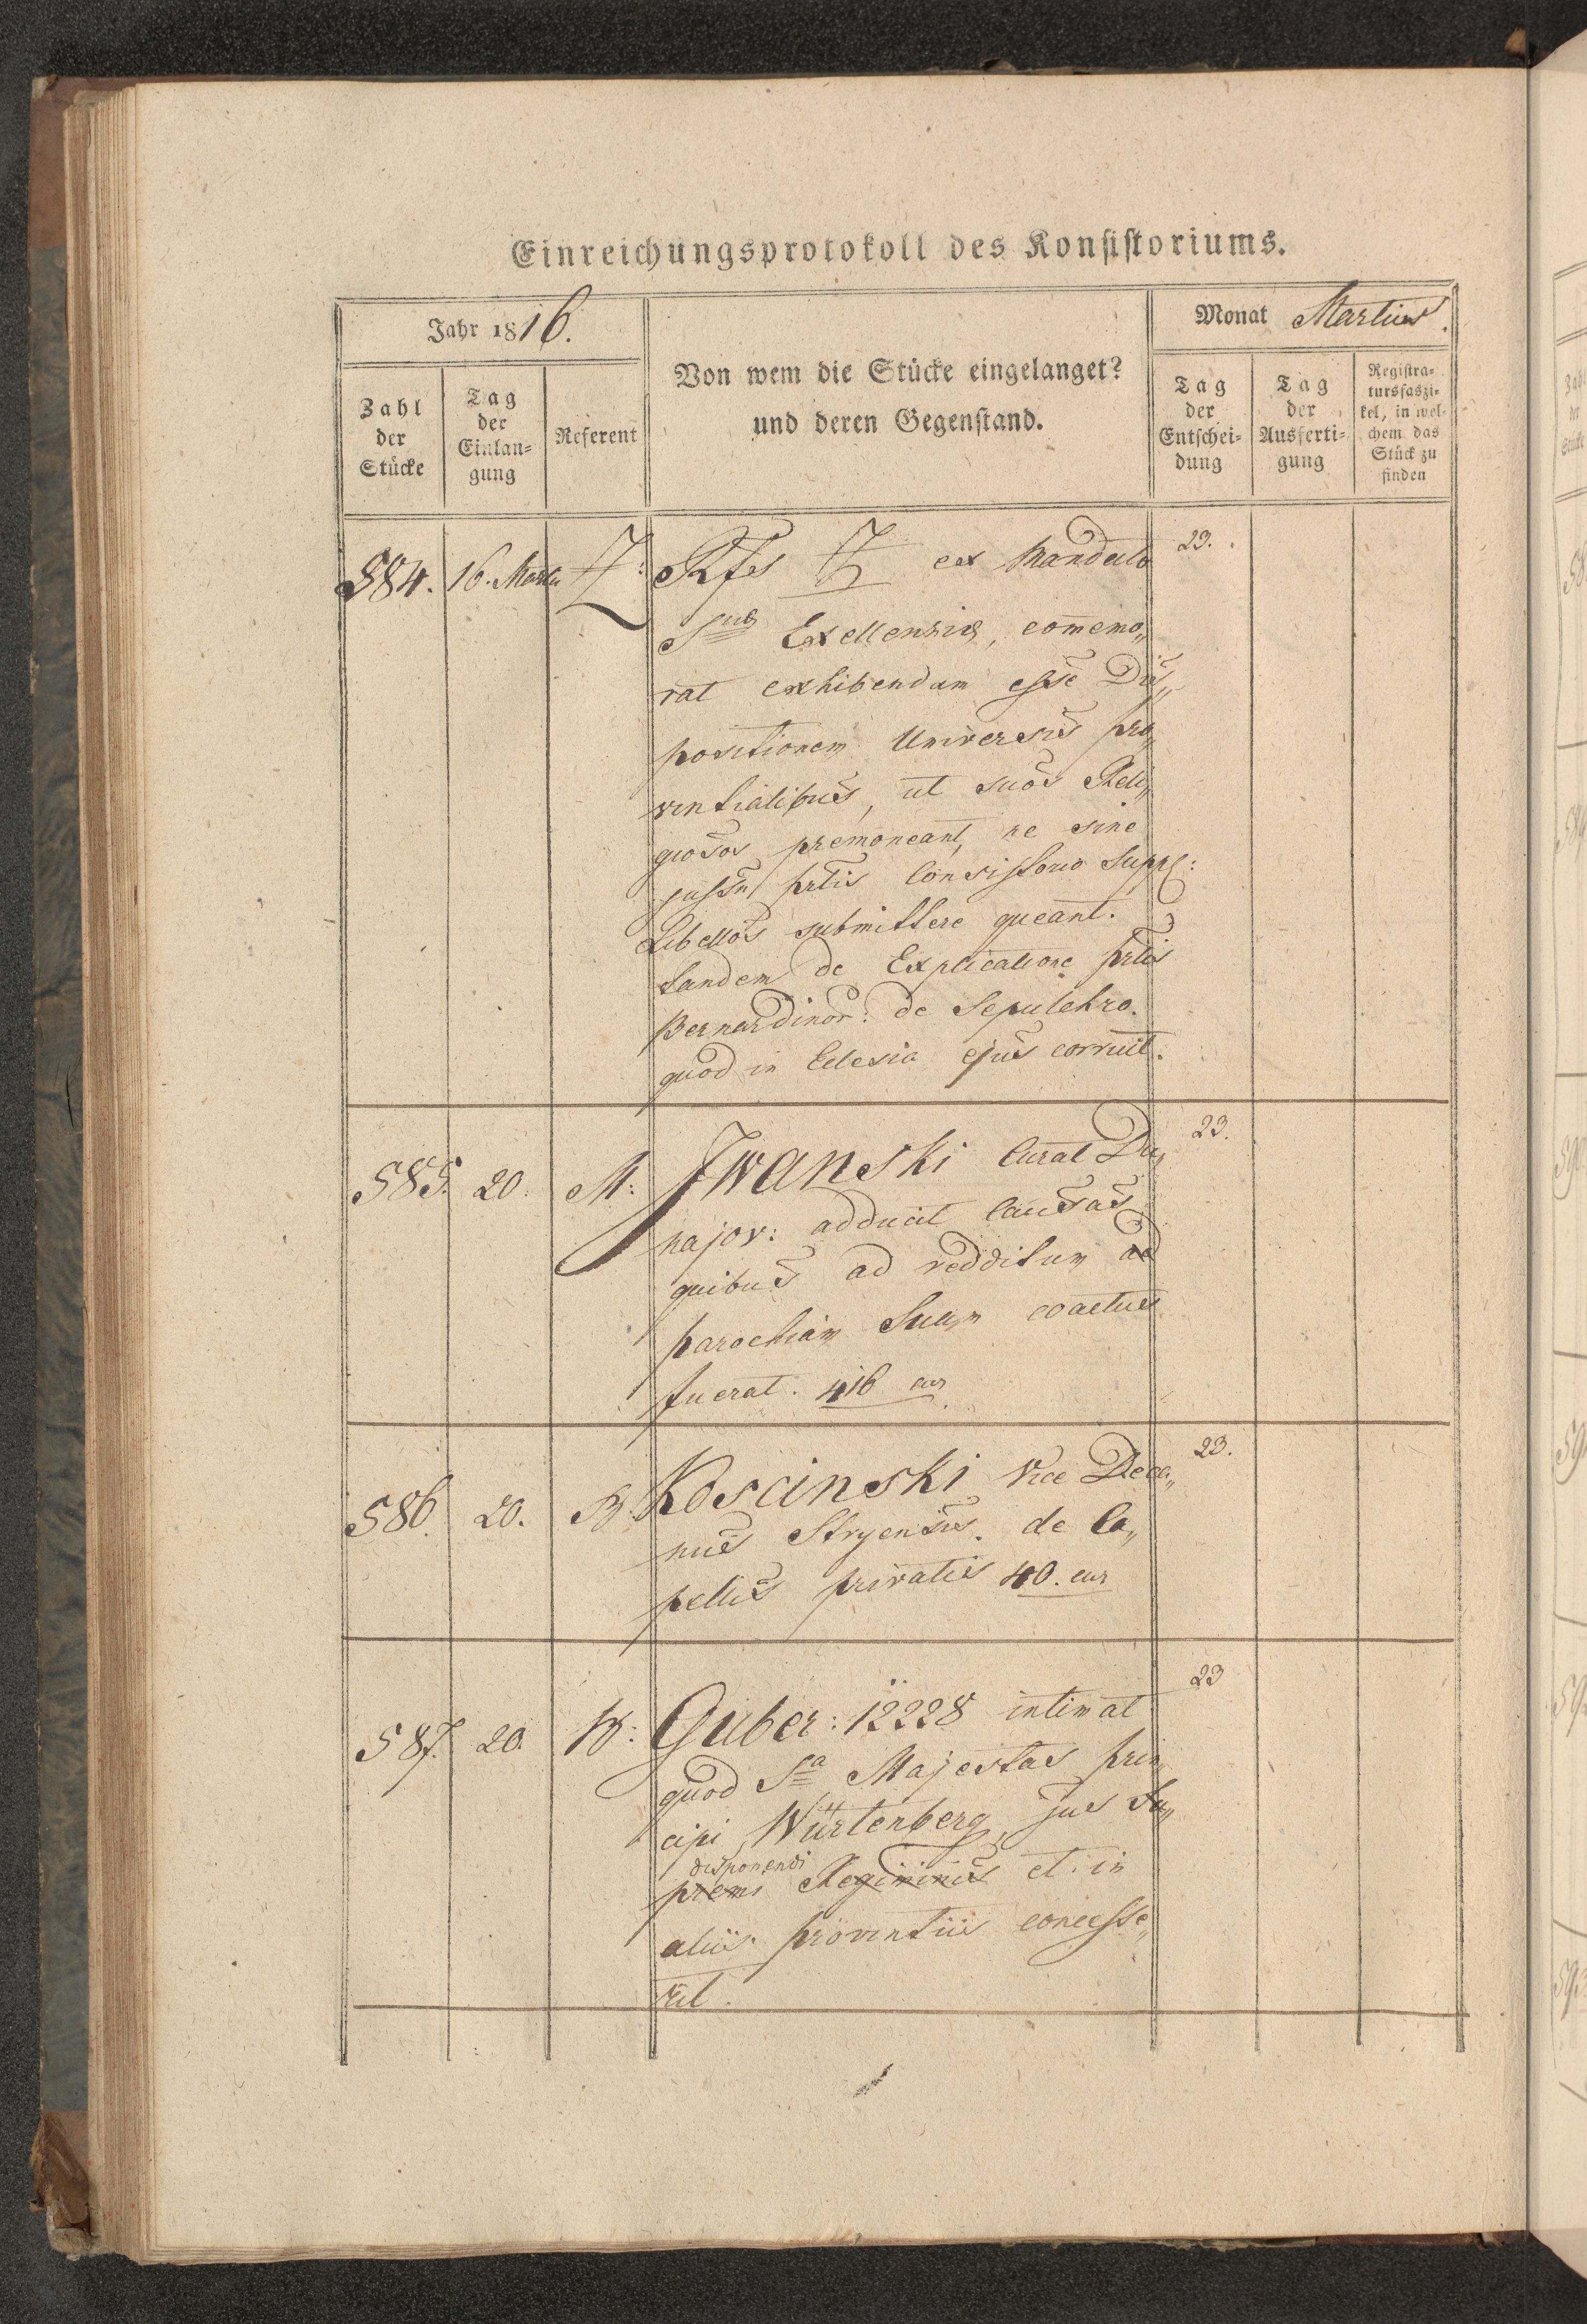 Einreichungsprotokoll des Konsistoriums.
Jahr 1816.
Von wem die Stücke eingelanget?
und deren Gegenstand.
Monat Martius.
Zahl der Stücke
Tag der Einlan-
gung
Referent
Tag der Entschei-
dung
Tag der Ausferti-
gung
Registra-
tursfaszi-
kel, in wel-
chem das
Stück zu
finden
584. 16. Martii Z: Rfes Z ex Mandato 23.
Suae Exellenziae, com̄emo„
rat exhibendam esse Dis„
positionem Universis pro„
vintialibus, ut suos Reli„
giosos premoneant, ne sine
jussu prlis Consistorio Suppl:
Libellos submittere queant.
tandem de Explicatione prlis
Bernardinor: de Sepulchro.
quod in Eclesia ejus corruit.
585. 20. M: Iwanski Curat Du„ 23.
najov: adducit Causas
quibus ad redditum ad
parochiam Suam coactus
fuerat. 416 cur
586. 20. Koscinski Vice Deca„ 23.
nus Stryensis. de Ca„
pellis privatis 40. cur
587. 20. W: Guber: 12228 intimat 23
quod Sa Majestas prin„
cipi Würtenberg, jus Su„
disponendi
premi Regiminis et in
aliis provintiis concesse„
rit.